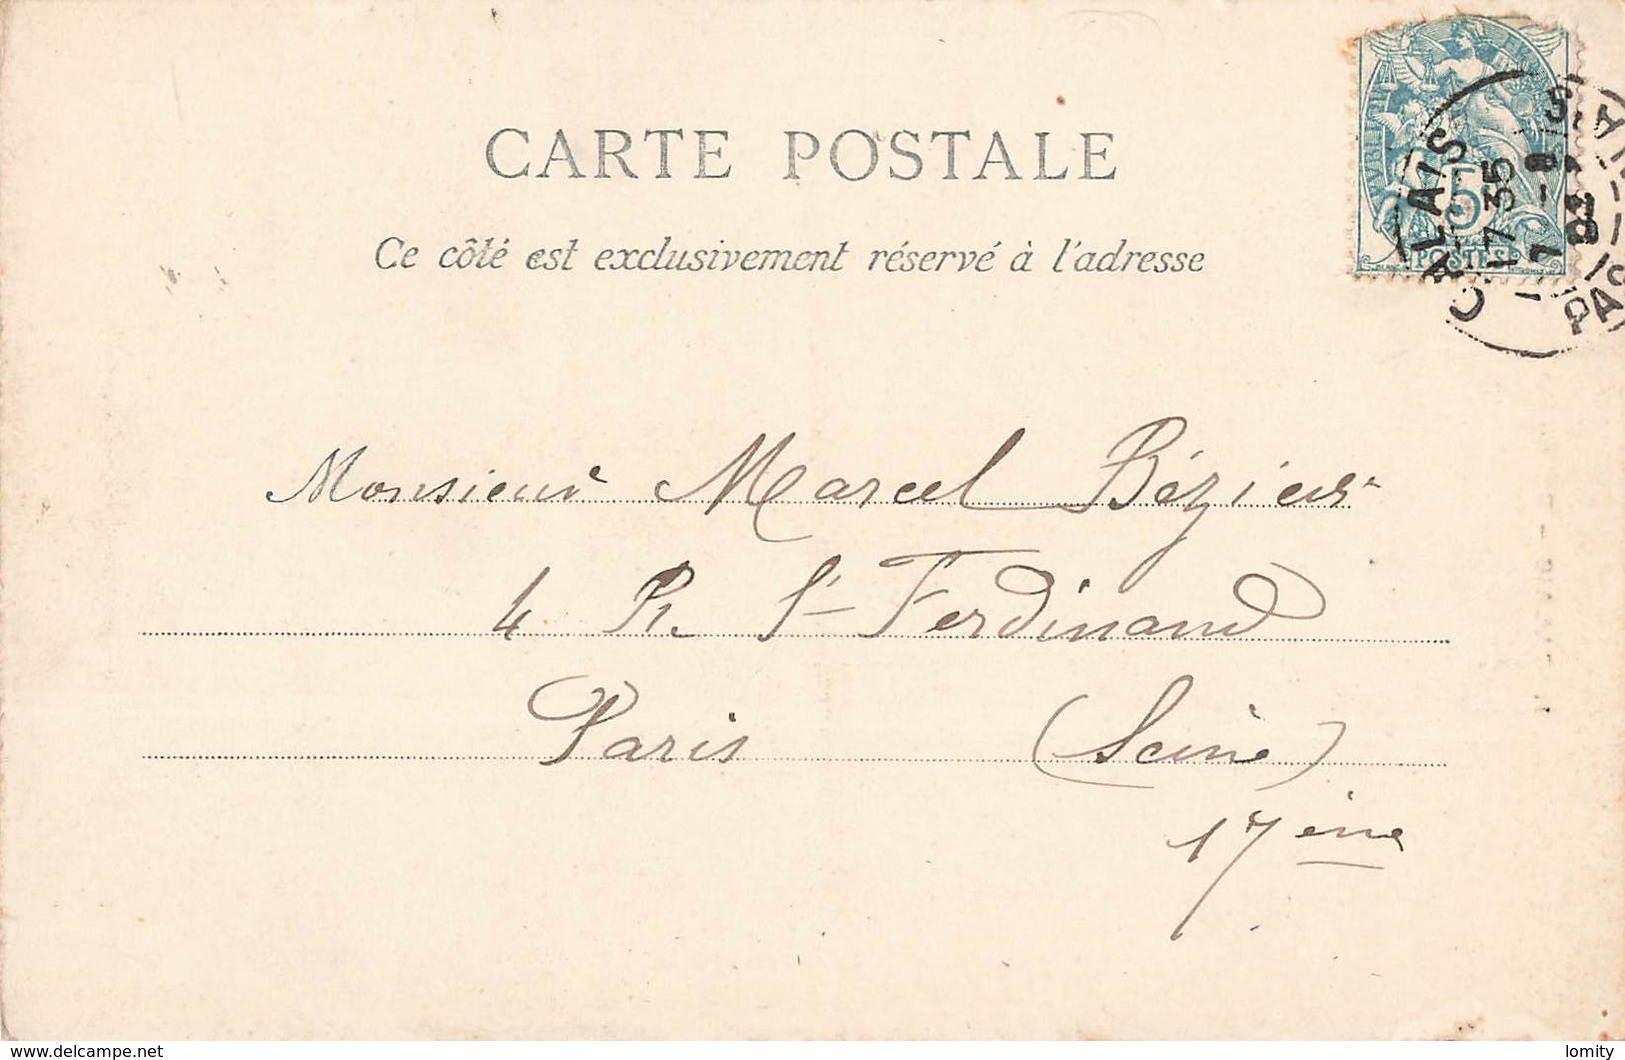 CARTE POSTALE
Ce côté est exclusivement réservé à l'adresse
5
POSTES
CALAIS
17 35
Monsieur Marcel Béziers
4 R. St Ferdinand
Paris (Seine)
17ème
www.delcampe.net
lomity